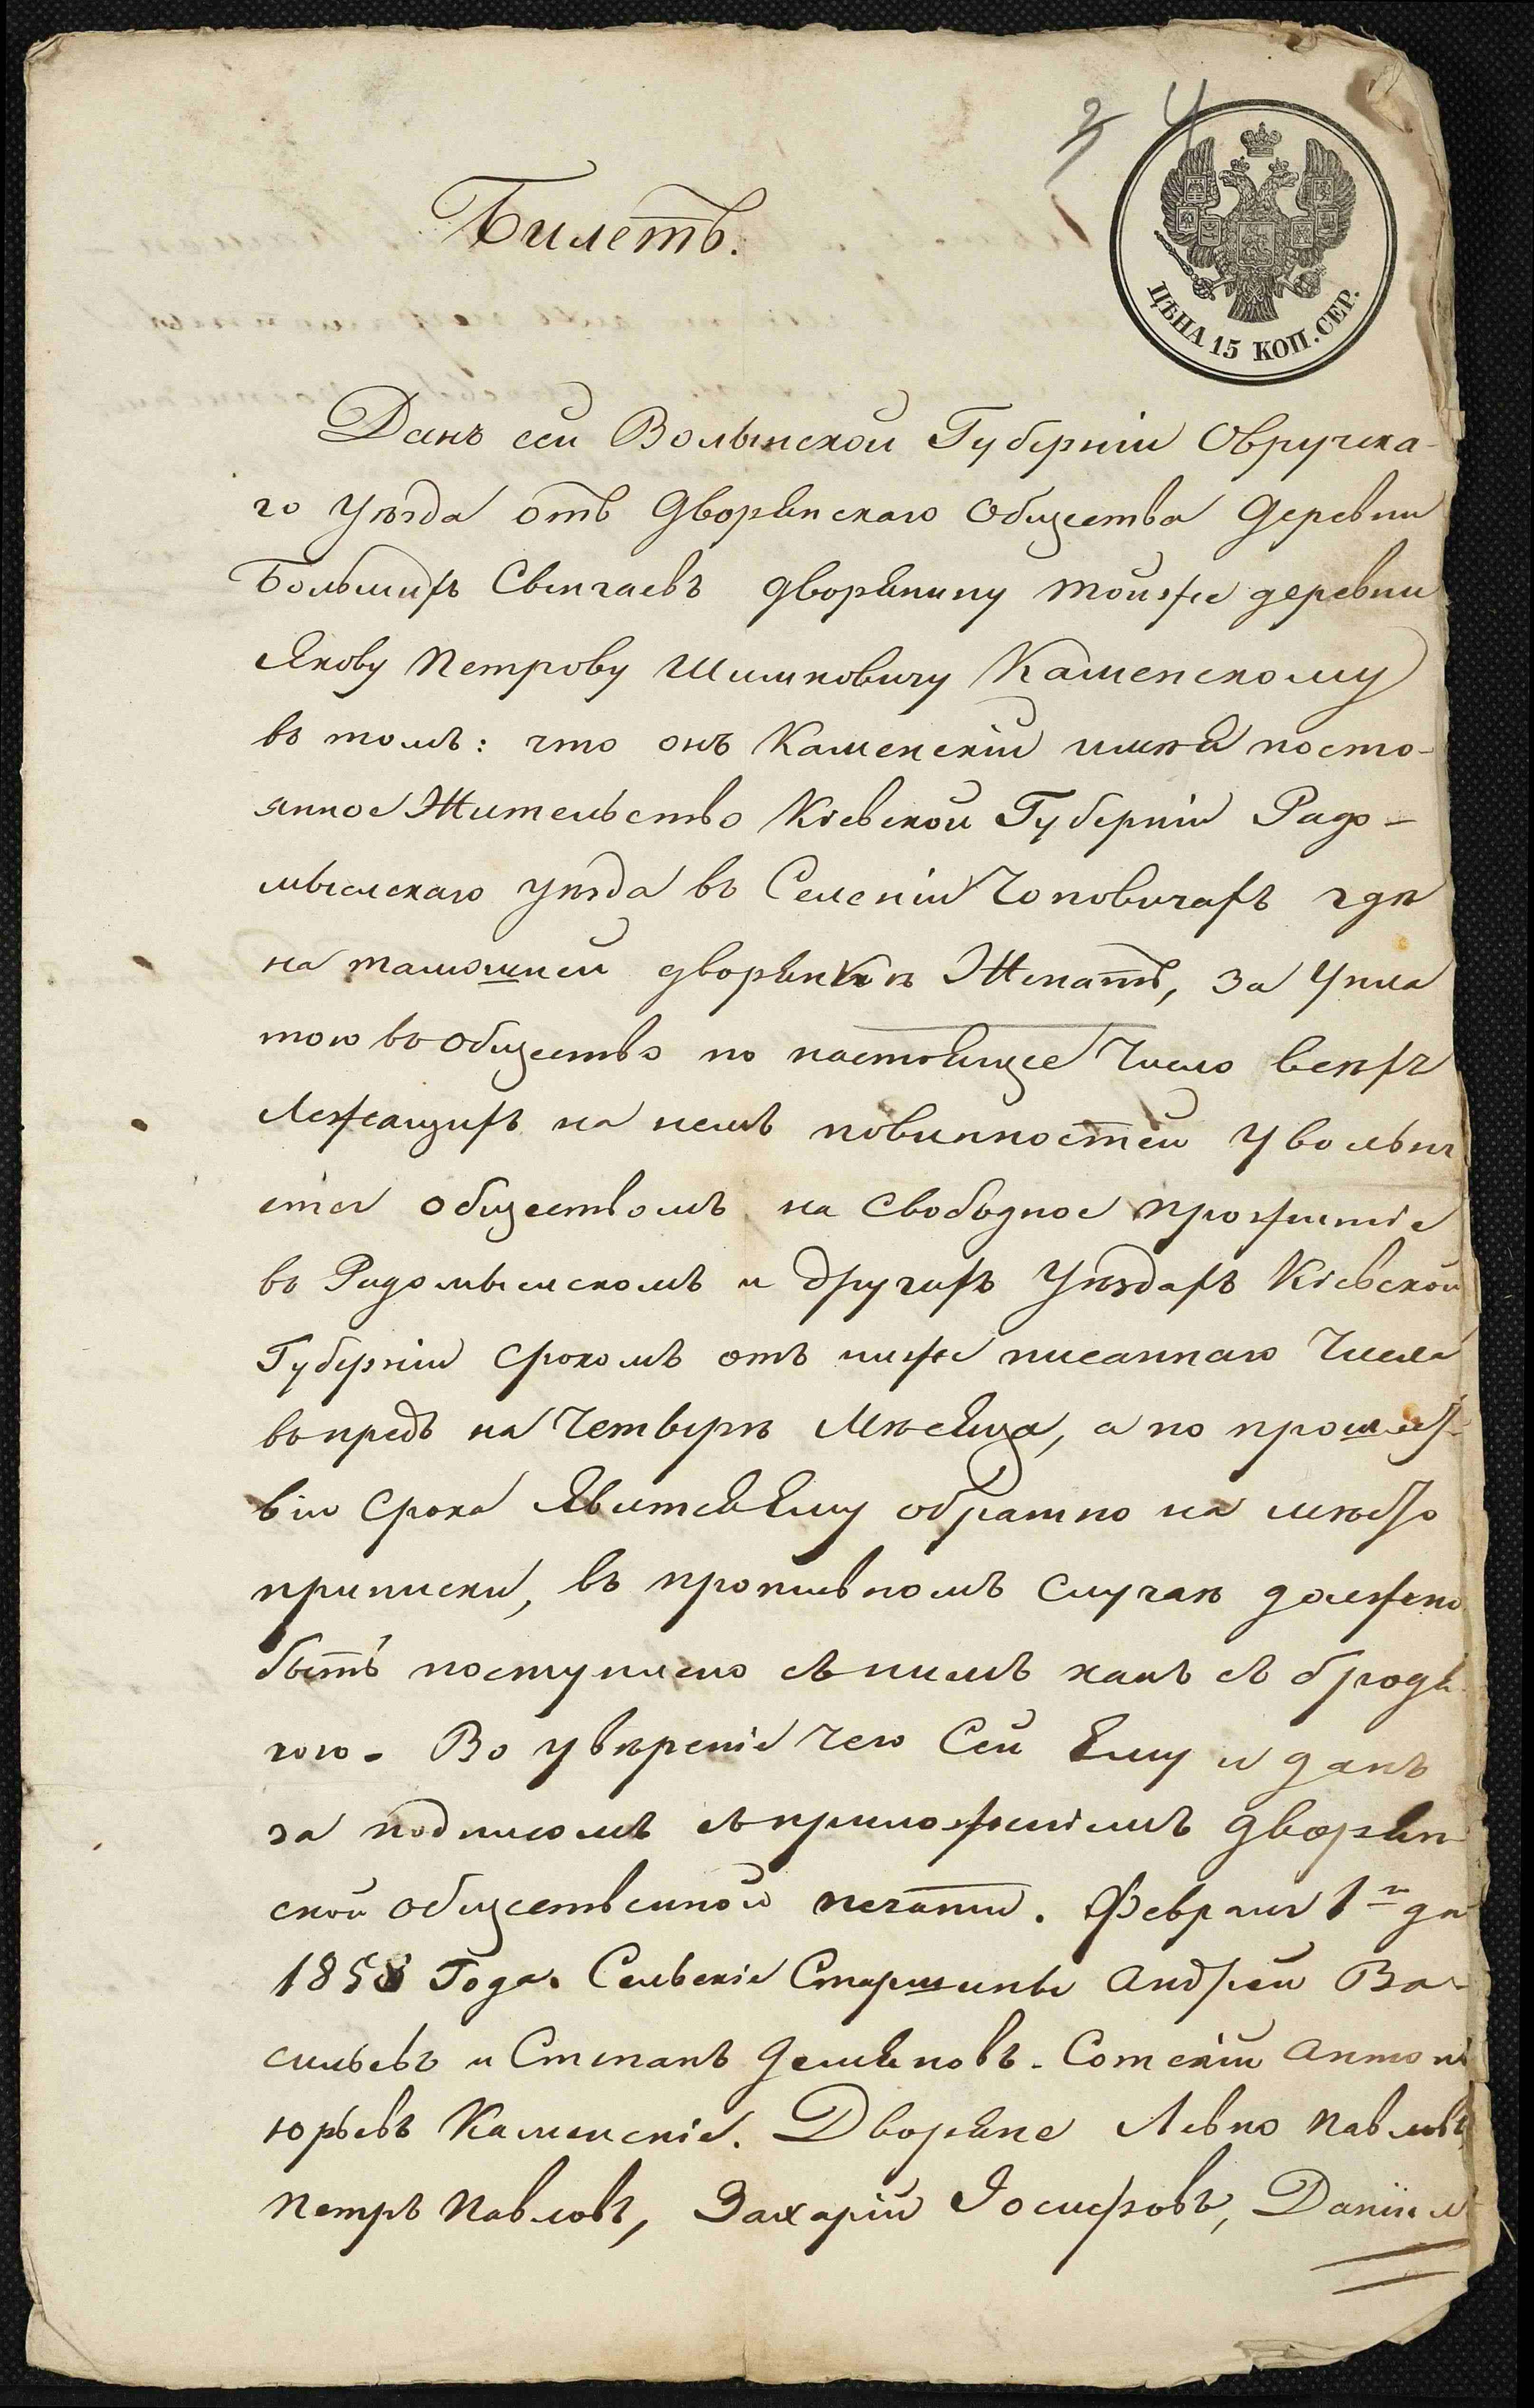 3 4
ЦѢНА 15 КОП. СЕР.
Билетъ.
Данъ сей Волынской Губерніи Овручска-
го уѣзда отъ Дворянскаго Общества Деревни
Большихъ Свенчаевъ дворянину тойже деревни
Якову Петрову Шишковичу Каменскому
въ томъ: что онъ Каменскій имѣя посто-
янное Жительство Кіевской Губерніи Радо-
мысльскаго уѣзда въ Селеніи Чоповичахъ гдѣ
на тамошней дворянкѣ Женатъ, за Упла
тою въ Общество по настоящее Число всѣхъ
Лежащихъ на немъ повинностей Увольня
етса обществомъ на Свободное прожитіе
въ Радомысльскомъ и другихъ Уѣздахъ Кіевской
Губерніи срокомъ отъ ниже писаннаго Числа
впредъ на Четвери Мѣсяца, а по прошест-
віи Срока Явится Ему обратно на мѣсто
приписки, въ противномъ Случаѣ должно
быть поступлено съ нимъ какъ съ бродя-
гою. Во увѣреніе чего Сей Ему и данъ
за подписомъ съ приложеніемъ дворян
ской общественной печати. Февраля 1го дня
1858 Года. Сельскіе Старшины Андрей Ва-
сильевъ и Степанъ Демяновъ. Сотскій Антоній
Юрьевъ Каменскіе. Дворяне Левко Павловъ,
Петръ Павловъ, Захарій Іосифовъ, Даніил